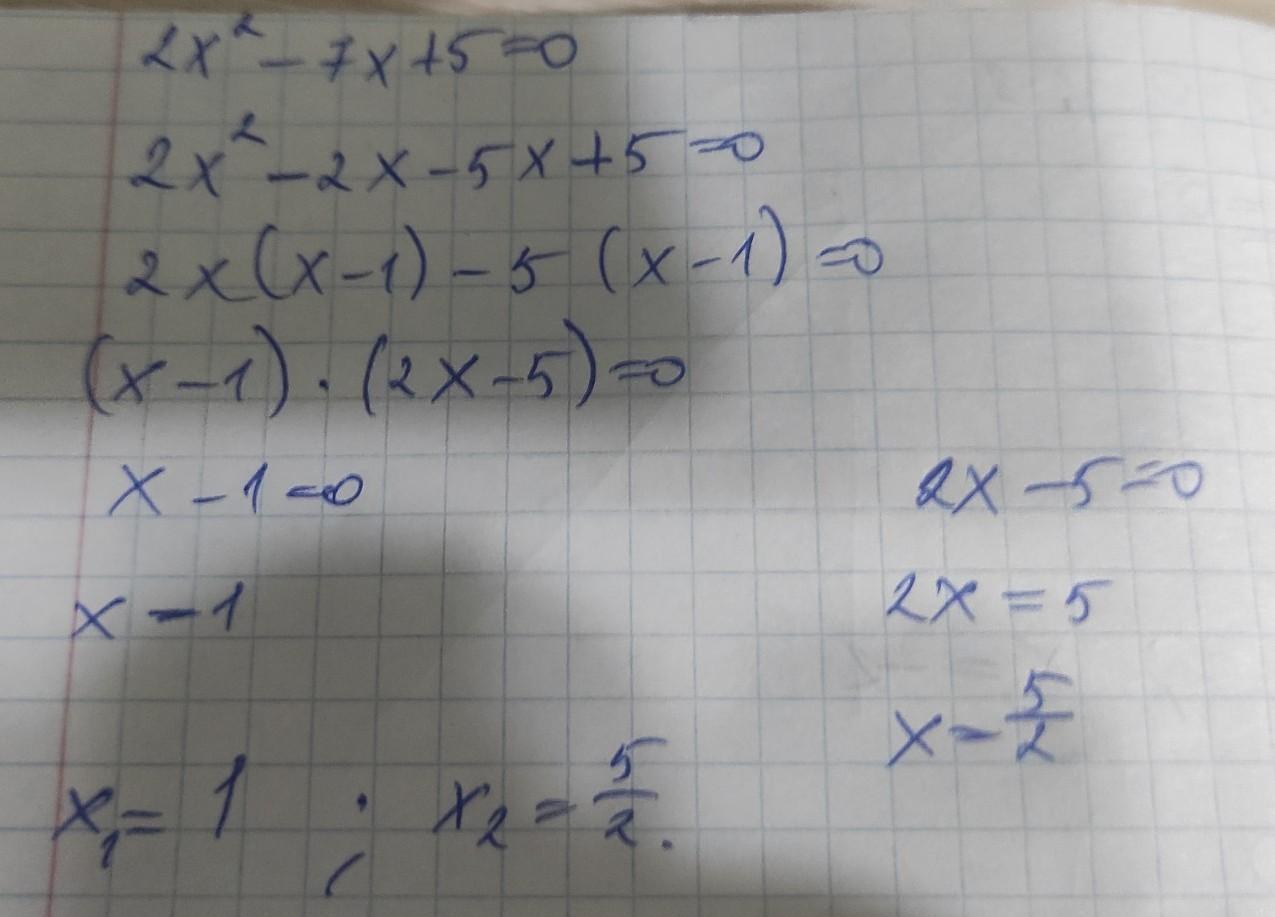 2x² - 7x + 5 = 0
2x² - 2x - 5x + 5 = 0
2x(x - 1) - 5 (x - 1) = 0
(x - 1) · (2x - 5) = 0
x - 1 = 0
2x - 5 = 0
x = 1
2x = 5
x = 5/2
x₁ = 1 ; x₂ = 5/2.